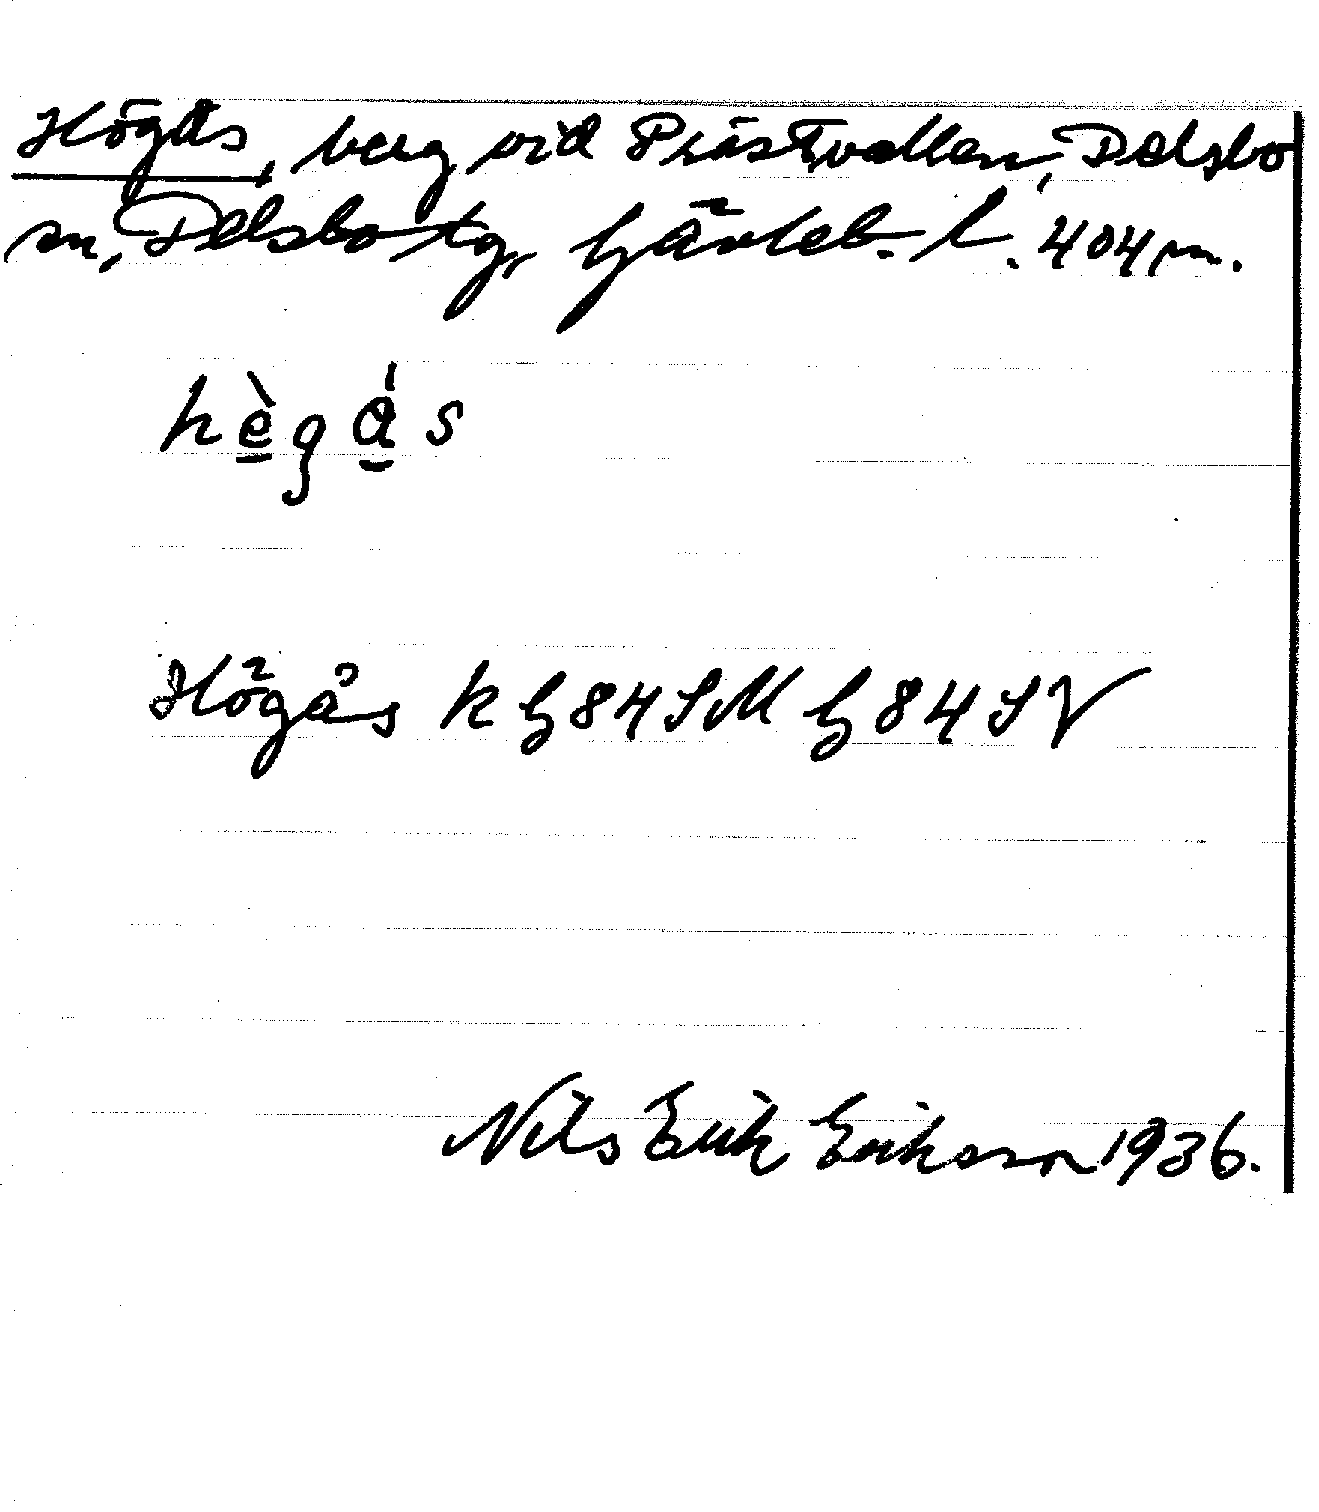 Högås, berg vid Prästvallen, Delsbo
sn, Delsbo tg, Gävleb. l. 404 m.
hègås
Högås k G 84 SM G 84 SV
Nils Erik Eriksson 1936.